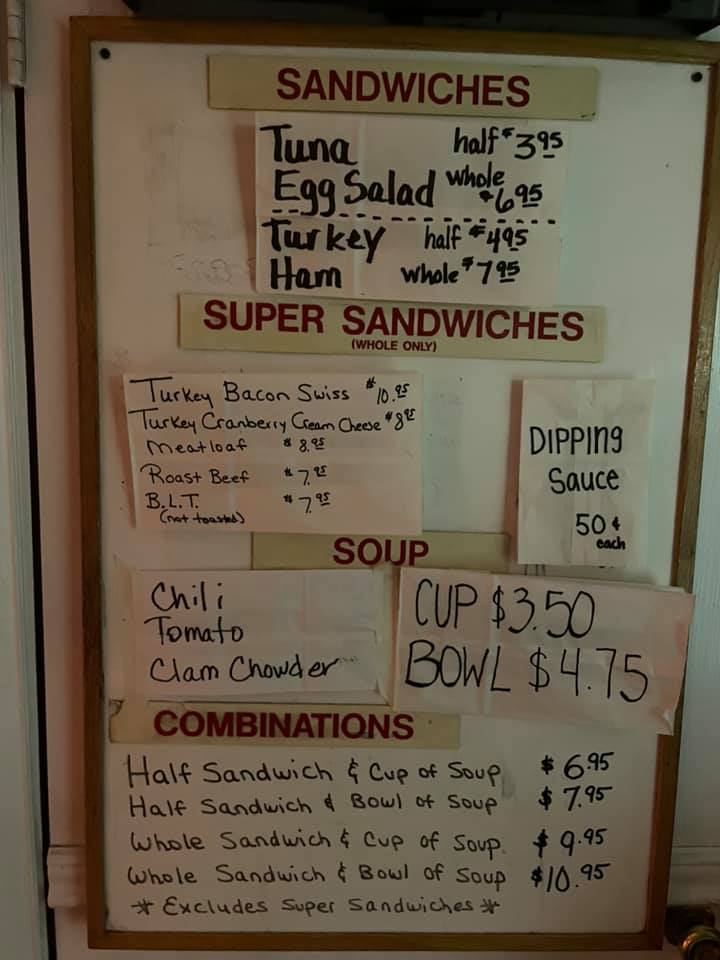 SANDWICHES
Tuna half $3.95
Egg Salad whole $6.95
Turkey half $4.95
Ham whole $7.95
SUPER SANDWICHES
(WHOLE ONLY)
Turkey Bacon Swiss $10.95
Turkey Cranberry Cream Cheese $8.95
Meatloaf $8.95
Roast Beef $7.95
B.L.T. $7.95
(not toasted)
DIPPING
Sauce
50¢
each
SOUP
Chili
Tomato
Clam Chowder
CUP $3.50
BOWL $4.75
COMBINATIONS
Half Sandwich & Cup of Soup $6.95
Half Sandwich & Bowl of Soup $7.95
Whole Sandwich & Cup of Soup. $9.95
Whole Sandwich & Bowl of Soup $10.95
* Excludes Super Sandwiches *